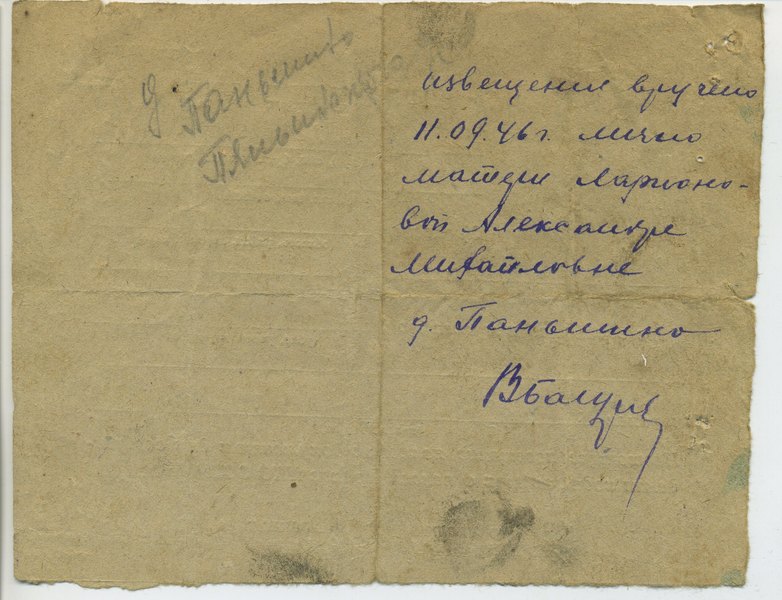 д Паньшино
извещение вручено
11.09.46 г. лично
матери Ларионо-
вой Александре
Михайловне
д. Паньшино